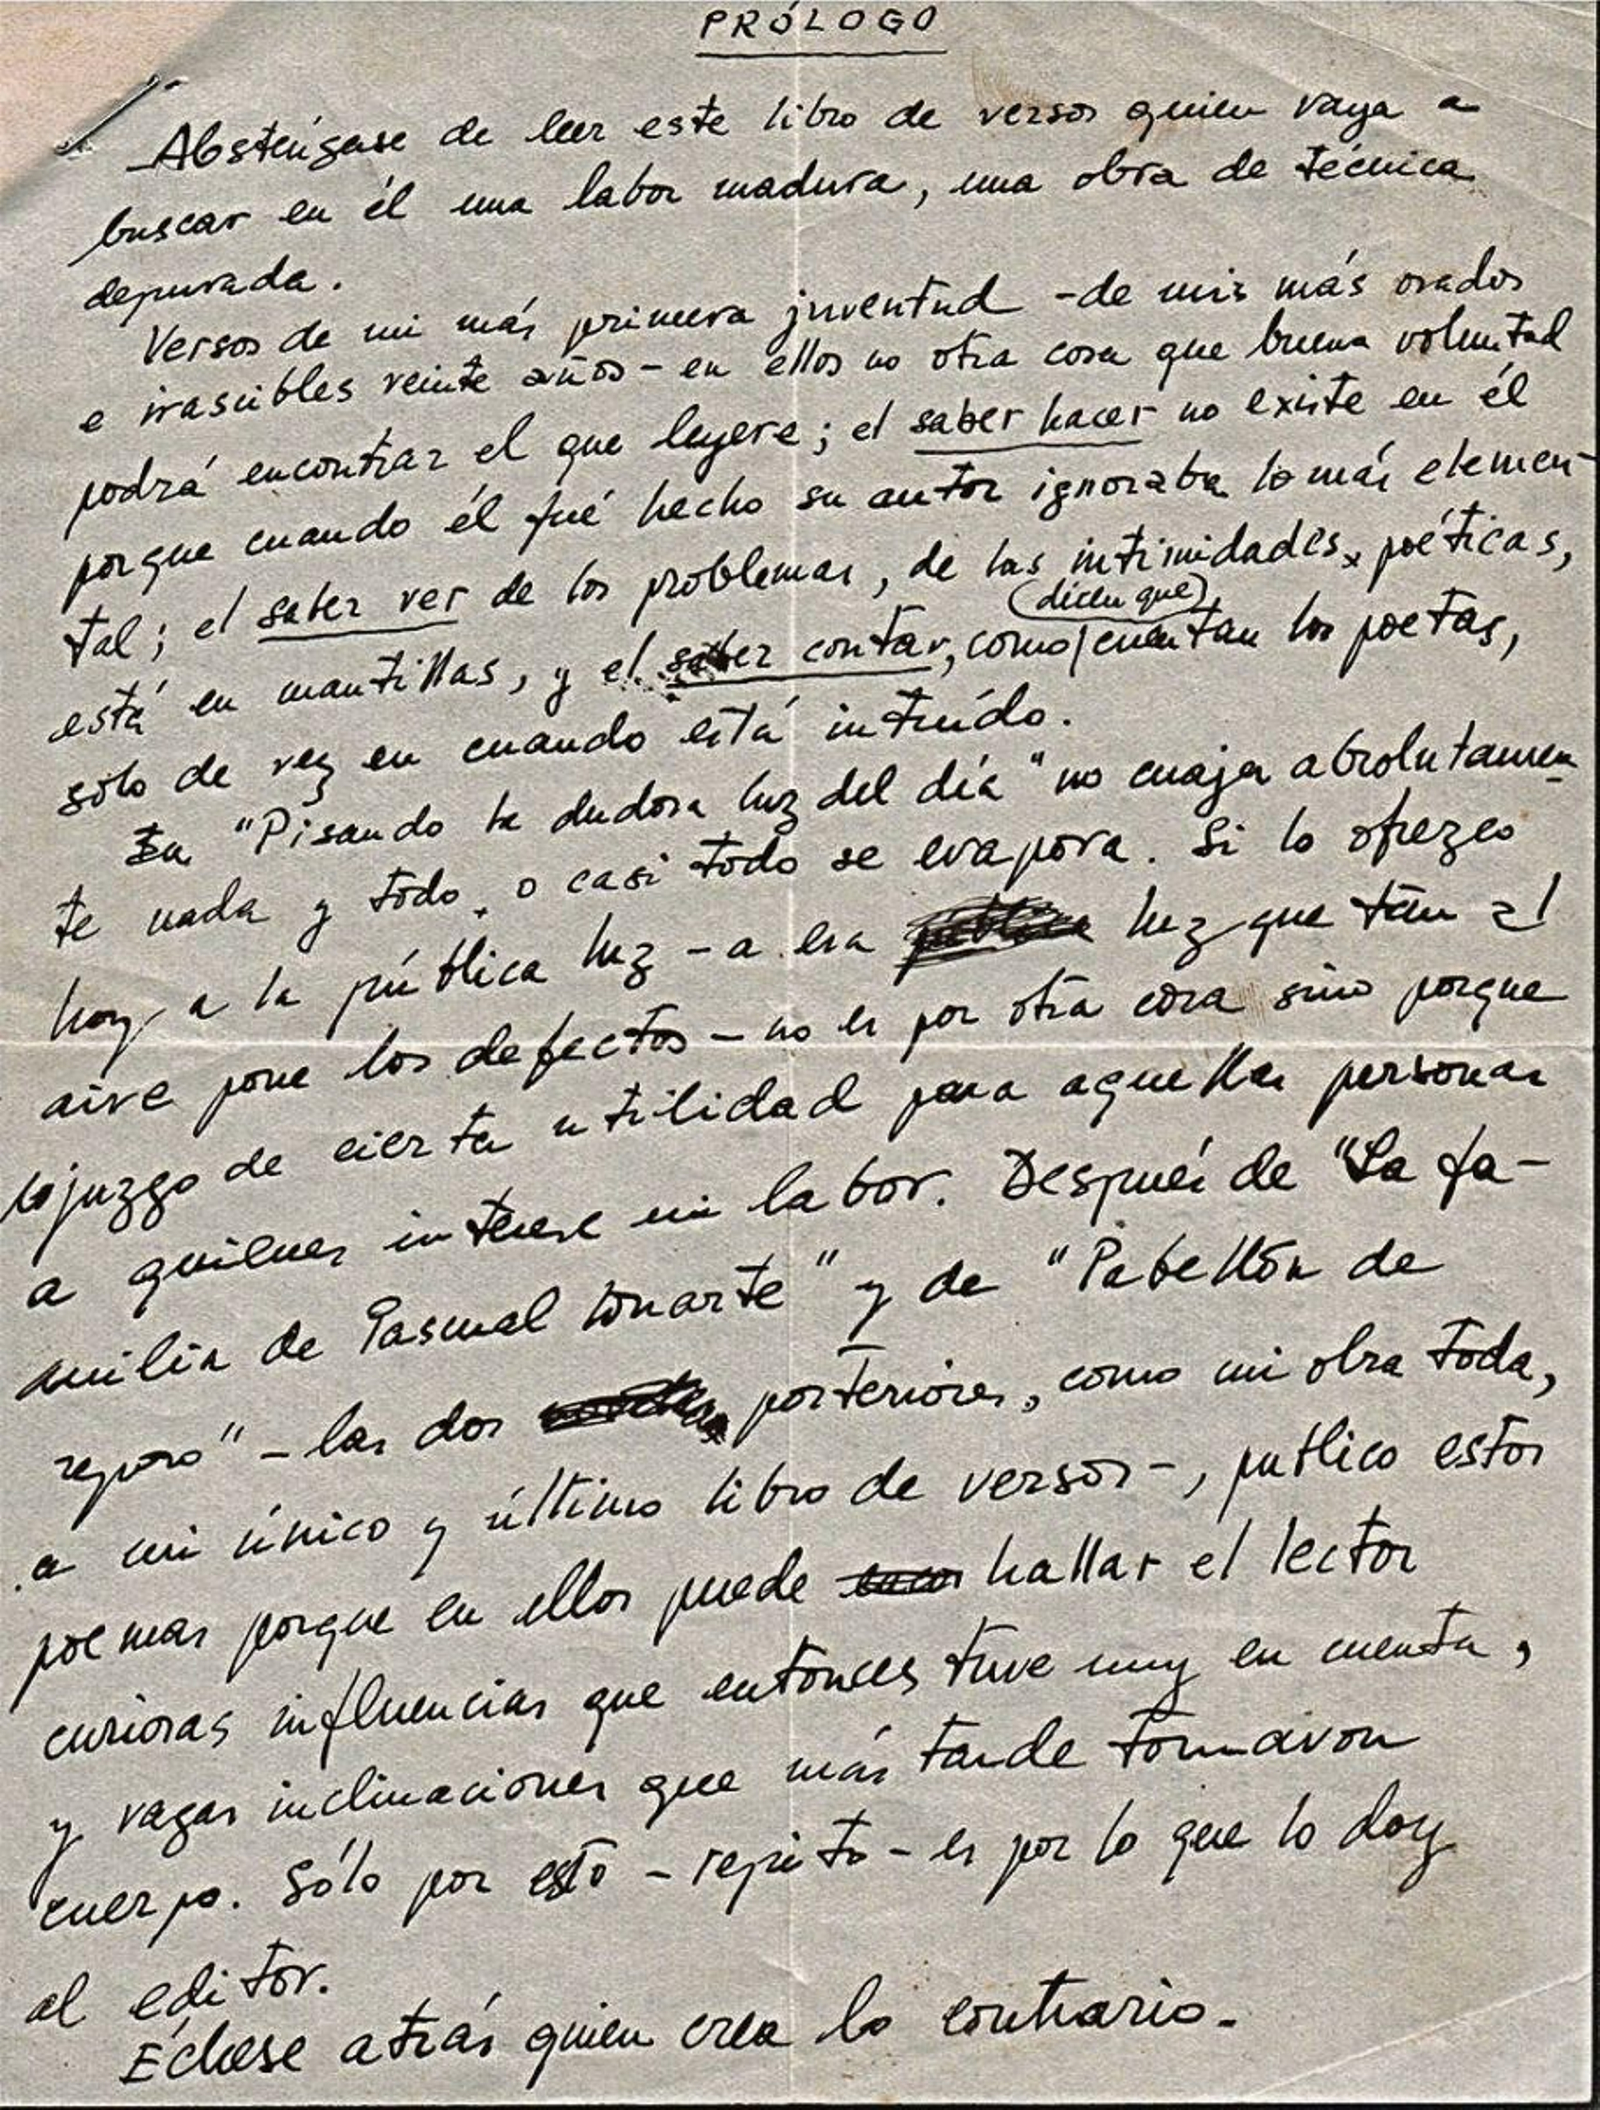 PRÓLOGO
Absténgase de leer este libro de versos quien vaya a
buscar en él una labor madura, una obra de técnica
depurada.
Versos de mi más primera juventud -de mis más osados
e irascibles veinte años- en ellos no otra cosa que buena voluntad
podrá encontrar el que leyere; el saber hacer no existe en él
porque cuando él fué hecho su autor ignoraba lo más elemen-
tal; el saber ver de los problemas, de las intimidades poéticas,
está en mantillas, y el saber contar, como (dicen que) cuentan los poetas,
sólo de vez en cuando está intuído.
En "Pisando la dudosa luz del día" no cuaja absolutamen-
te nada y todo, o casi todo se evapora. Si lo ofrezco
hoy a la pública luz - a esa pública luz que tan al
aire pone los defectos - no es por otra cosa sino porque
lo juzgo de cierta utilidad para aquellas personas
a quienes interese mi labor. Después de "La fa-
milia de Pascual Duarte" y de "Pabellón de
reposo" - las dos posteriores, como mi obra toda,
a mi único y último libro de versos -, publico estos
poemas porque en ellos puede hallar el lector
curiosas influencias que entonces tuve muy en cuenta,
y vagas inclinaciones que más tarde tomaron
cuerpo. Sólo por esto - repito - es por lo que lo doy
al editor.
Échese atrás quien crea lo contrario.-